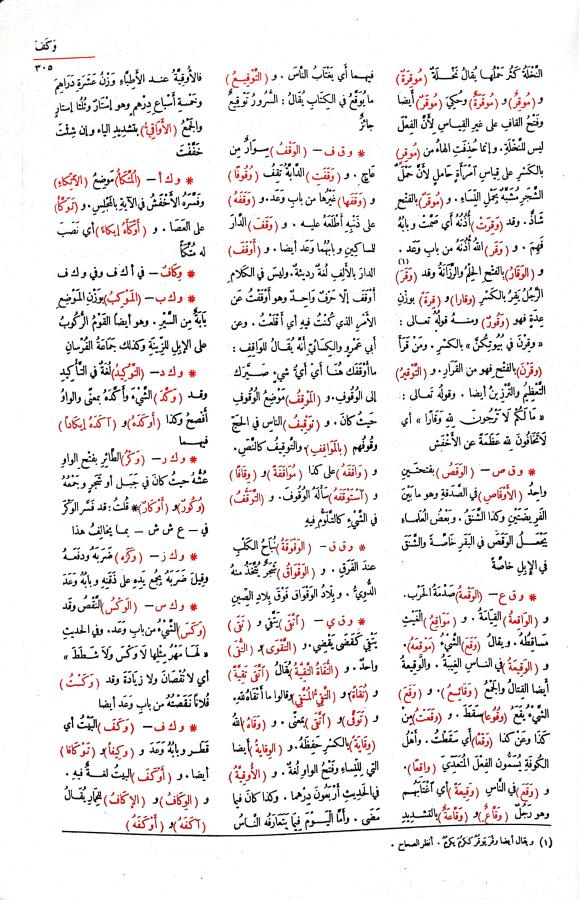 وَكَفَ
٣٠٥
النَّخْلَةُ كَثُرَ حَمْلُها يُقالُ نَخْلَةٌ (مُوقِرَةٌ)
و (مُوقِرٌ) و (مُوقَرَةٌ) وحُكِيَ (مُوقَرٌ) أيضا
وفَتْحُ القافِ على غيرِ القِياسِ لأنَّ الفِعْلَ
ليس للنَّخْلَةِ. وإنما حُذِفَتِ الهاءُ مِن (مُوقِرٍ)
بالكَسْرِ على قِياسِ امْرَأةٍ حامِلٍ لأنَّ حَمْلَ
الشَّجَرِ مُشَبَّهٌ بِحَمْلِ النِّساءِ. و (مُوقَرٌ) بالفتحِ
شاذٌّ. وقد (وَقِرَتْ) أُذُنُهُ أي صَمَّتْ وبابُهُ
فَهِمَ. و (وَقَرَ) اللّٰهُ أُذُنَهُ من بابِ وَعَدَ.
و (الوَقَارُ) بالفتحِ الحِلْمُ والرَّزَانَةُ وقد (وَقَرَ) (١)
الرَّجُلُ يَقِرُ بالكَسْرِ (وَقارا) و (قِرَةً) بوزنِ
عِدَةٍ فهو (وَقُورٌ) ومنهُ قولُهُ تعالى:
«وَقِرْنَ في بُيُوتِكُنَّ» بالكَسْرِ. ومَنْ قَرَأَ
(وقَرْنَ) بالفتحِ فهو من القَرَارِ. و (التَّوْقِيرُ)
التَّعْظِيمُ والتَّرْزِينُ أيضا. وقولُهُ تعالى:
«مَا لَكُمْ لَا تَرْجُونَ لِلّٰهِ وَقَارًا» أي
لا تَخَافُونَ لِلّٰهِ عَظَمَةً عن الأَخْفَشِ
* و ق ص – (الوَقَصُ) بفتحتينِ
واحدُ (الأَوْقاصِ) في الصَّدَقَةِ وهو ما بَيْنَ
الفَرِيضَتَيْنِ وكذا الشَّنَقُ. وبعضُ العُلَماءِ
يَجْعَلُ الوَقَصَ في البَقَرِ خاصَّةً والشَّنَقَ
في الإبِلِ خاصَّةً
* و ق ع – (الوَقْعَةُ) صَدْمَةُ الحَرْبِ.
و (الواقِعَةُ) القِيامَةُ. و (مَواقِعُ) الغَيْثِ
مَساقِطُهُ. ويقالُ (وَقَعَ) الشَّيْءُ (مَوْقِعَهُ).
و (الوَقِيعَةُ) في الناسِ الغِيبَةُ. والوَقِيعَةُ
أيضا القِتالُ والجَمْعُ (وَقائِعُ). و (وَقَعَ)
الشَّيْءُ يَقَعُ (وُقُوعا) سَقَطَ. و (وَقَعْتُ) مِنْ
كَذا وعَنْ كذا (وَقْعًا) أي سَقَطْتُ. وأهْلُ
الكُوفَةِ يُسَمُّونَ الفِعْلَ المُتَعَدِّيَ (واقِعًا).
و (وَقَعَ) في الناسِ (وَقِيعَةً) أي اغْتابَهُم
وهو رَجُلٌ (وَقَّاعٌ) و (وَقَّاعَةٌ) بالتشديدِ
(١) ويقال أيضا وقُر يوقُر ككرُم يكرُم. انظر الصحاح.
فيهما أي يَغْتابُ الناسَ. و (التَّوْقِيعُ)
ما يُوَقَّعُ في الكِتابِ يُقالُ: السُّرُورُ تَوْقِيعٌ
جائِزٌ
* و ق ف – (الوَقْفُ) سِوَارٌ مِن
عاجٍ. و (وَقَفَتِ) الدابَّةُ تَقِفُ (وُقُوفا)
و (وَقَفَها) غَيْرُها مِن بابِ وَعَدَ. و (وَقَفَهُ)
على ذَنْبِهِ أطْلَعَهُ عليه. و (وَقَفَ) الدَّارَ
للمساكينِ وبابُهُما وَعَدَ أيضا. و (أَوْقَفَ)
الدارَ بالألِفِ لُغَةٌ رَدِيئَةٌ. وليس في الكلامِ
أَوْقَفَ إلا حَرْفٌ واحِدٌ وهو أَوْقَفْتُ عن
الأمْرِ الذي كُنْتُ فيه أي أَقْلَعْتُ. وعن
أبي عَمْرٍو والكسائيِّ أنَّه يُقالُ للواقِفِ:
ما أَوْقَفَكَ هُنا أيْ أيُّ شيءٍ صَيَّرَكَ
إلى الوُقُوفِ. و (المَوْقِفُ) مَوْضِعُ الوُقُوفِ
حيثُ كانَ. و (تَوْقِيفُ) الناسِ في الحَجِّ
وُقُوفُهُم (بالمَواقِفِ). والتوقيفُ كالنَّصِّ.
و (واقَفَهُ) على كذا (مُواقَفَةً) و (وِقافا)
و (اسْتَوْقَفَهُ) سَأَلَهُ الوُقُوفَ. و (التَّوَقُّفُ)
في الشَّيْءِ كالتَّلَوُّمِ فيه
* و ق ق – (الوَقْوَقَةُ) نُباحُ الكَلْبِ
عندَ الفَرَقِ. و (الوَقْواقُ) شَجَرٌ يُتَّخَذُ منه
الدُّوِيُّ. و بِلادُ الوَقْواقِ فَوْقَ بِلادِ الصِّينِ
* و ق ي – (اتَّقَى) يَتَّقِي و (تَقَى)
يَتْقِي كَقَضَى يَقْضِي. و (التَّقْوَى) و (التُّقَى)
واحدٌ. و (التُّقَاةُ) (التَّقِيَّةُ) يُقالُ (اتَّقَى تَقِيَّةً)
و (تُقَاةً) و (التَّقِيُّ) (المُتَّقِي) وقالوا ما أتْقاهُ لله.
و (تَوَقَّى) و (اتَّقَى) بمعنًى. و (وَقاهُ) اللّٰهُ
(وِقايَةً) بالكسْرِ حَفِظَهُ. و (الوِقايَةُ) أيضا
التي للنِّساءِ وفَتْحُ الواوِ لُغَةٌ. و (الأُوقِيَّةُ)
في الحَدِيثِ أرْبَعُونَ دِرْهما. وكذا كانَ فيما
مَضَى. وأمَّا اليَوْمَ فِيما يَتَعارَفُهُ النَّاسُ
فالأُوقِيَّةُ عندَ الأطِبَّاءِ وَزْنُ عَشَرَةِ دَراهِمَ
وخَمْسَةِ أسْباعِ دِرْهمٍ وهو إسْتارٌ وثُلُثا إسْتارٍ
والجَمْعُ (الأَواقِيُّ) بتشديدِ الياءِ وإن شِئْتَ
خَفَّفْتَ
* و ك أ – (المُتَّكَأُ) مَوْضِعُ (الاتِّكاءِ)
وفَسَّرَهُ الأَخْفَشُ في الآيةِ بالمَجْلِسِ. و (تَوَكَّأَ)
على العَصَا. و (أَوْكَأَهُ إيكاءً) أي نَصَبَ
له مُتَّكَأً
* وِكافٌ – في أ ك ف وفي و ك ف
* و ك ب – (المَوْكِبُ) بوزْنِ المَوْضِعِ
بابَةٌ مِن السَّيْرِ. وهو أيضًا القَوْمُ الرُّكُوبُ
على الإبِلِ للزِّينَةِ وكذلك جَماعَةُ الفُرْسانِ
* و ك د – (التَّوْكِيدُ) لُغَةٌ في التَّأْكِيدِ
وقد (وَكَّدَ) الشَّيْءَ وأَكَّدَهُ بمعنًى والواوُ
أفْصَحُ وكذا (أَوْكَدَهُ) و (آكَدَهُ إيكادًا)
فيهما
* و ك ر – (وَكْرُ) الطّائِرِ بفتحِ الواوِ
عُشُّهُ حيثُ كانَ في جَبَلٍ أو شَجَرٍ وجَمْعُهُ
(وُكُورٌ) و (أَوْكارٌ) * قُلْتُ: قد فَسَّرَ الوَكْرَ
في – ع ش ش – بما يخالفُ هذا
* و ك ز – (وَكَزَهُ) ضَرَبَهُ ودَفَعَهُ
وقيلَ ضَرَبَهُ بجُمْعِ يَدِهِ على ذَقَنِهِ وبابُهُ وَعَدَ
* و ك س – (الوَكْسُ) النَّقْصُ وقد
(وَكَسَ) الشَّيْءُ من بابِ وَعَدَ. وفي الحديثِ
«لها مَهْرُ مِثْلِها لا وَكْسَ ولا شَطَطَ»
أي لا نُقْصانَ ولا زِيادَةَ وقد (وَكَسْتُ)
فُلانًا نَقَصْتُهُ من بابِ وَعَدَ أيضا
* و ك ف – (وَكَفَ) البَيْتُ أي
قَطَرَ وبابُهُ وَعَدَ و (وَكِيفًا) و (تَوْكافا)
أيضا. و (أَوْكَفَ) البيتُ لغةٌ فيه.
و (الوِكافُ) و (الإكافُ) للحِمارِ يُقالُ
(آكَفَهُ) و (أَوْكَفَهُ)